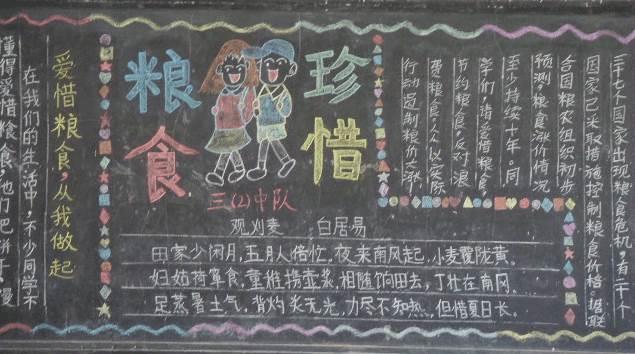 三十七个国家出现粮食危机,有二十个
国家已采取措施控制粮食价格.据联
合国粮农组织初步
预测,粮食涨价情况
至少持续十年。同
学们,请爱惜粮食,
节约粮食,反对浪
费粮食,人人以实际
行动遏制粮价上涨.
珍惜
粮食
三(2)中队
观刈麦 白居易
田家少闲月,五月人倍忙,夜来南风起,小麦覆陇黄。
妇姑荷箪食,童稚携壶浆,相随饷田去,丁壮在南冈。
足蒸暑土气,背灼炎天光,力尽不知热,但惜夏日长。
爱惜粮食,从我做起
在我们的生活中,不少同学不
懂得爱惜粮食,他们把饼干,馒